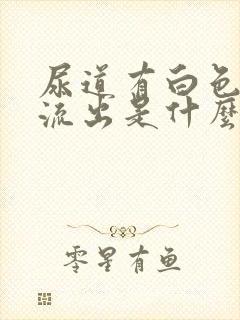 尿道有白色
流出是什麼
零星有鱼